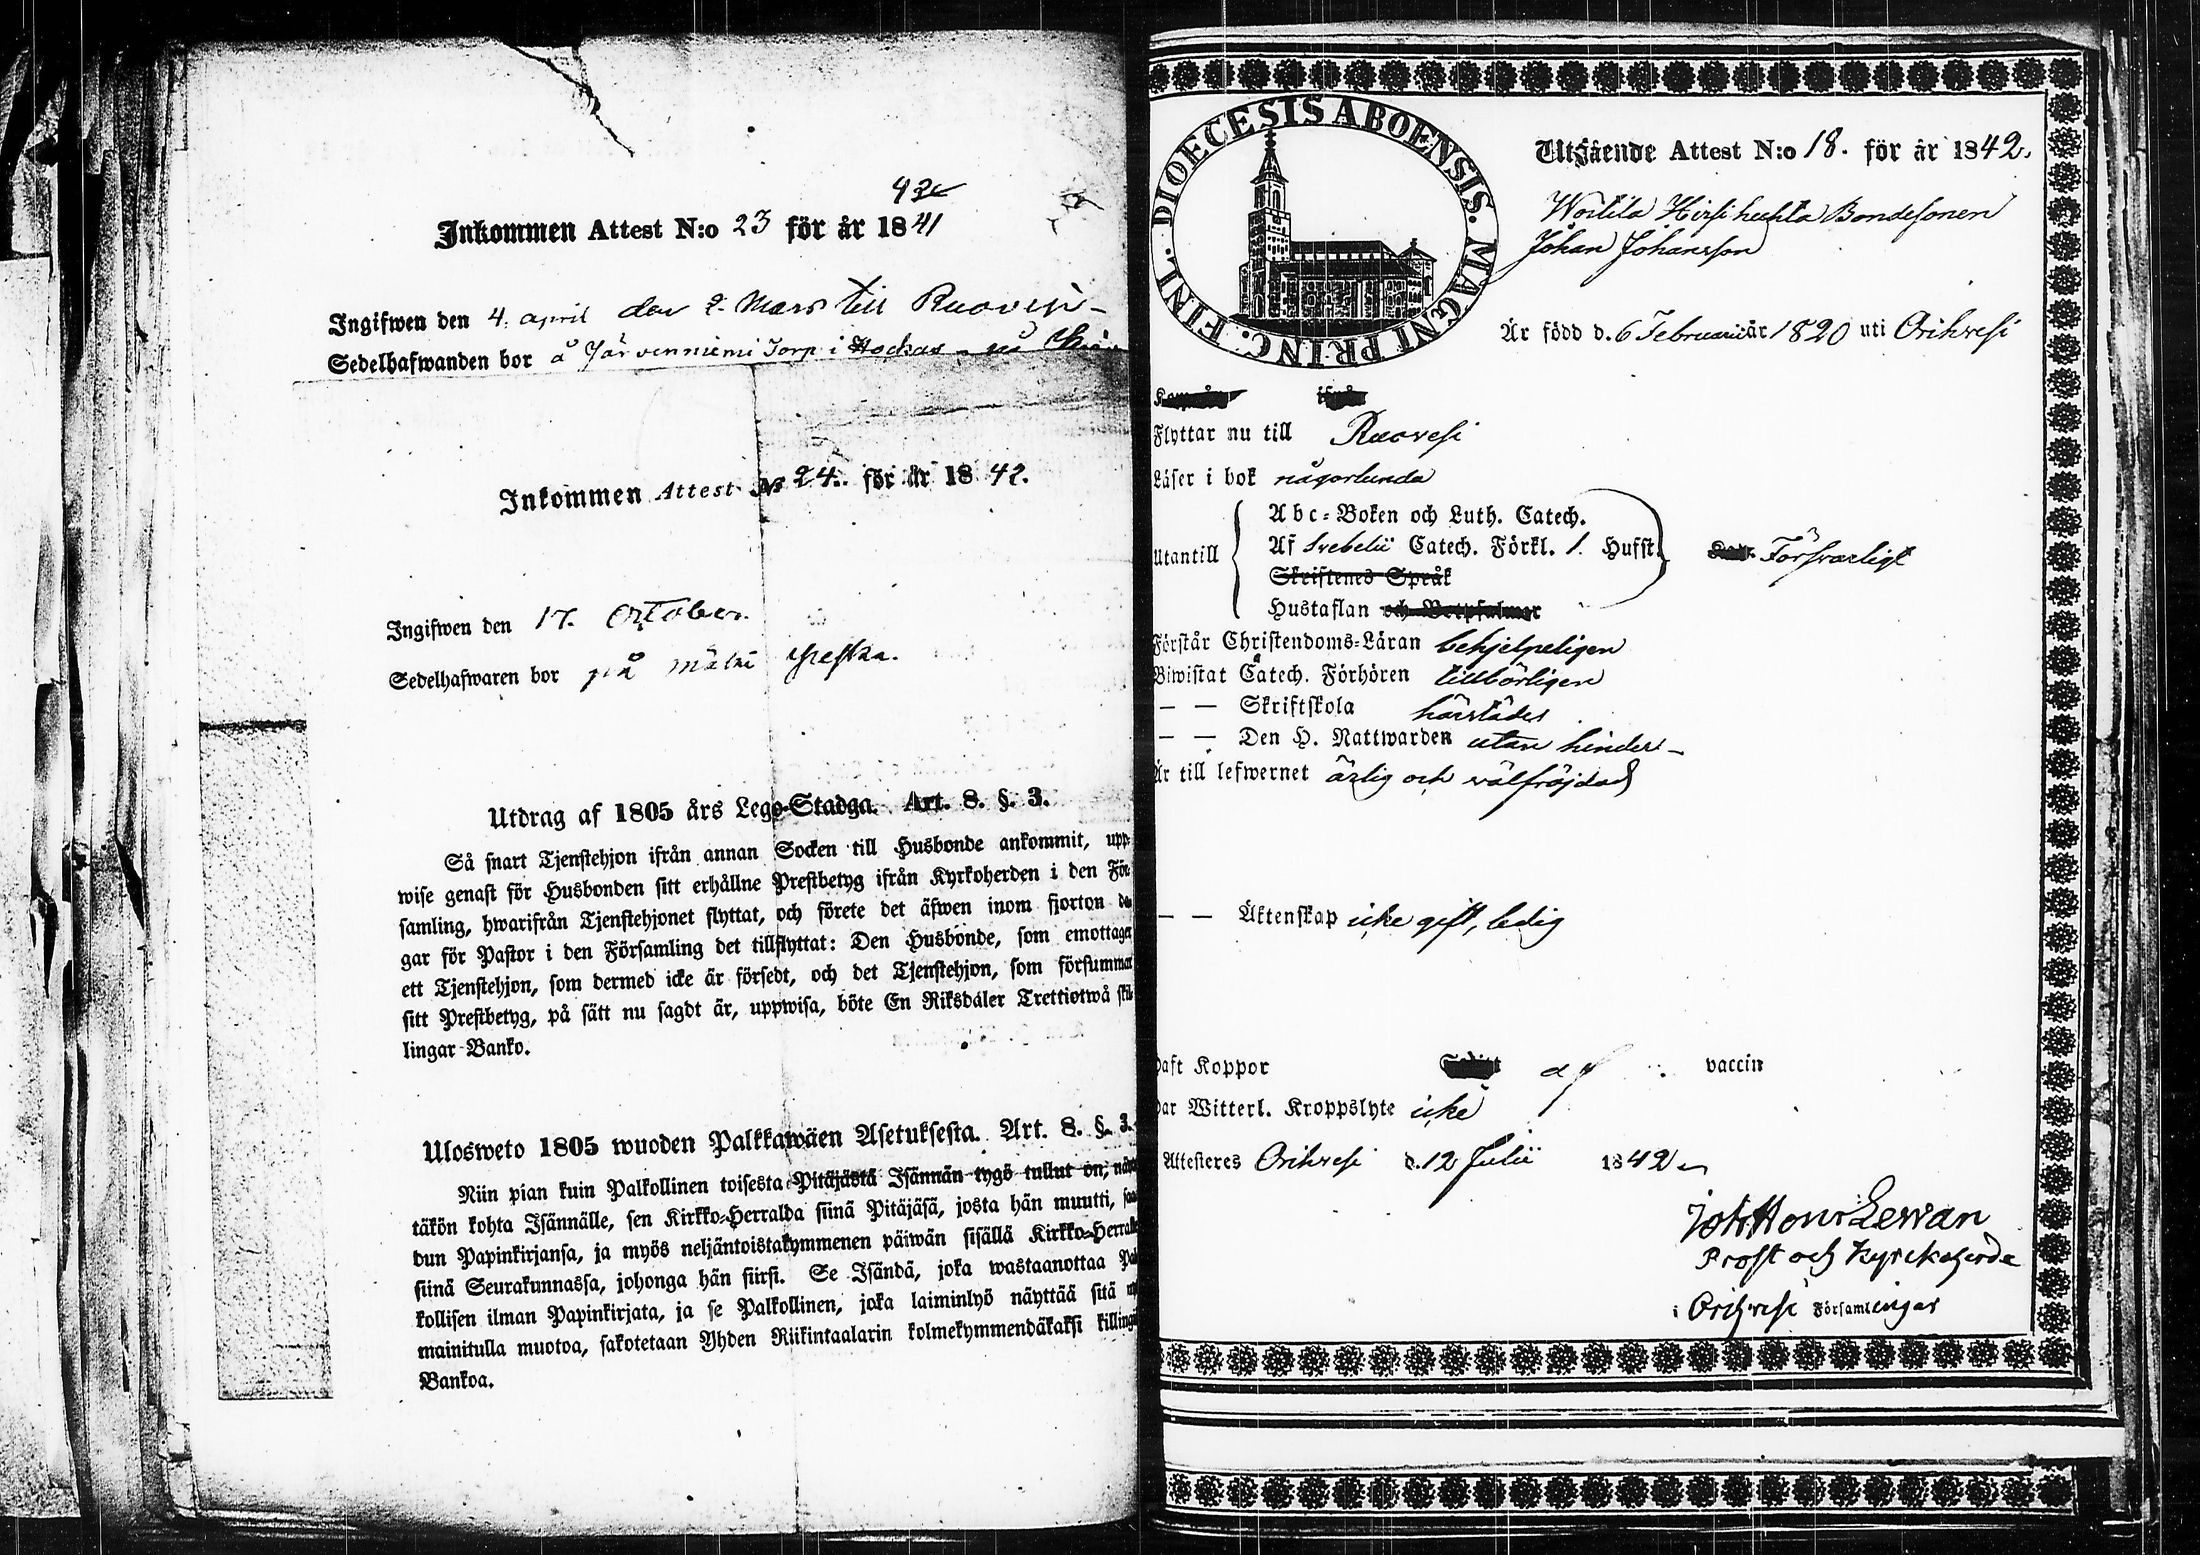 43
Inkommen Attest N:o 23 för år 1841
Ingifwen den 4. april den 2. Mars till Ruovesi
Sedelhafwanden bor å Järvenniemi Torp i
Inkommen Attest No 24. för år 1842.
Ingifwen den 17. October.
Sedelhafwaren bor på
Utdrag af 1805 års Lego-Stadga. Art. 8. §. 3.
Så snart Tjenstehjon ifrån annan Socken till Husbonde ankommit, upp-
wise genast för Husbonden sitt erhållne Prestbetyg ifrån Kyrkoherden i den För-
samling, hwarifrån Tjenstehjonet flyttat, och förete det äfwen inom fjorton da-
gar för Pastor i den Församling det tillflyttat: Den Husbonde, som emottager
ett Tjenstehjon, som dermed icke är försedt, och det Tjenstehjon, som försummar
sitt Prestbetyg, på sätt nu sagdt är, uppwisa, böte En Riksdaler Trettiotwå skil-
lingar Banko.
Ulosweto 1805 wuoden Palkkawäen Asetuksesta. Art. 8. §. 3.
Niin pian kuin Palkollinen toisesta Pitäjästä Isännän tygö tullut on, näyt-
täkön kohta Isännälle, sen Kirkko-Herralda siinä Pitäjäsä, josta hän muutti, saa-
dun Papinkirjansa, ja myös neljäntoistakymmenen päiwän sisällä Kirkko-Herralle
siinä Seurakunnassa, johonga hän siirsi. Se Isändä, joka wastaanottaa Pal-
kollisen ilman Papinkirjata, ja se Palkollinen, joka laiminlyö näyttää sitä
mainitulla muotoa, sakotetaan Yhden Riikintaalarin kolmekymmendäkaksi killingiä
Bankoa.
DIOECESIS ABOENSIS. MAGNI PRINC. FINL.
Utgående Attest N:o 18. för år 1842.
Wortila Hirsihuhta Bondesonen
Johan Johansson
Är född d. 6 Februarii år 1820 uti Orihvesi
Flyttar nu till Ruovesi
Läser i bok någorlunda
Utantill
Abc-Boken och Luth. Catech.
Af Svebelii Catech. Förkl. 1. Hufst.
Skriftenes Språk
Hustaflan och Botpsalmer
Försvarligt
Förstår Christendoms-Läran behjelpeligen
Biwistat Catech. Förhören tillbörligen
— — Skriftskola härstädes
— — Den H. Nattwarden utan hinder
Är till lefwernet ärlig och wälfräjdad
— — Äktenskap icke gift, ledig
Haft Koppor vaccin
Har Witterl. Kroppslyte icke
Attesteres Orihvesi d. 12 Julii 1842
Prost och Kyrckoherde
i Orihvesi Församlingar